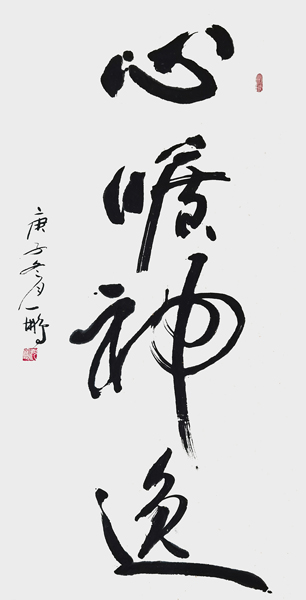 心曠神逸
庚子冬月一鵬